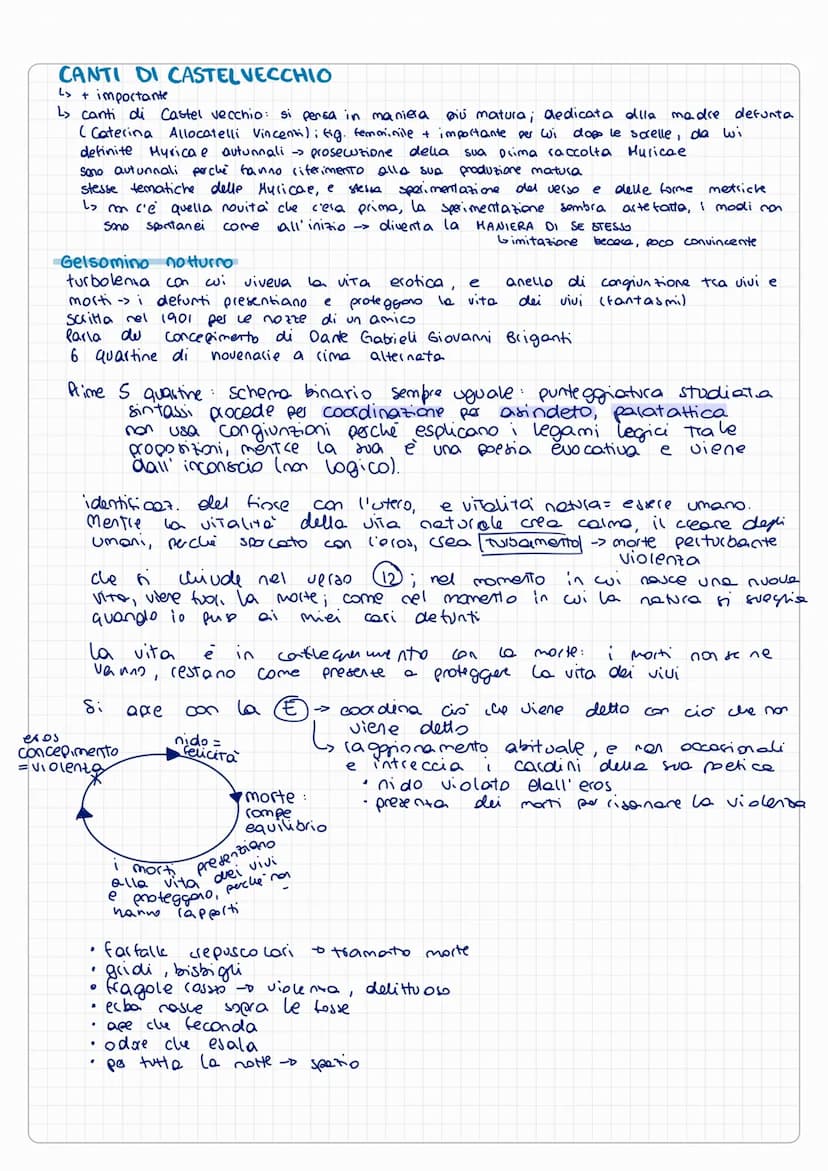 CANTI DI CASTELVECCHIO
↳ + importante
↳ canti di Castel vecchio: si pensa in maniera più matura; dedicata alla madre defunta
(Caterina Allocatelli Vincenti); fig. femminile + importante per lui dopo le sorelle, da lui
definite Myricae autunnali → prosecuzione della sua prima raccolta Myricae
sono autunnali perché fanno riferimento alla sua produzione matura
stesse tematiche delle Myricae, e stessa sperimentazione del verso e delle forme metriche
↳ non c'è quella novità che c'era prima, la sperimentazione sembra artefatta, i modi non
sono spontanei come all'inizio → diventa la MANIERA DI SE STESSO
↳ imitazione becera, poco convincente
Gelsomino notturno
turbolenza con cui viveva la vita erotica, e anello di congiunzione tra vivi e
morti → i defunti presentiano e proteggono la vita dei vivi (fantasmi)
scritta nel 1901 per le nozze di un amico
Parla del concepimento di Dante Gabrieli Giovanni Briganti
6 quartine di novenarie a rima alternata
Prime 5 quartine: schema binario sempre uguale: punteggiatura studiata
sintassi procede per coordinazione per asindeto, paratattica
non usa congiunzioni perché esplicano i legami logici tra le
proposizioni, mentre la sua è una poesia evocativa e viene
dall'inconscio (non logico).
identificaz. del fiore con l'utero, e vitalità natura = essere umano.
Mentre la vitalità della vita naturale crea calma, il creare degli
umani, perché sporcato con l'eros, crea turbamento → morte perturbante
violenza
che si chiude nel verso 12; nel momento in cui nasce una nuova
vita, viene fuori la morte; come nel momento in cui la natura si sveglia
quando io penso ai miei cari defunti
La vita è in collegamento con la morte: i morti non se ne
vanno, restano come presente a proteggere la vita dei vivi
Si apre con la E → coordina ciò che viene detto con ciò che non
viene detto
↳ raggionamento abituale, e non occasionali
e intreccia i cardini della sua poetica
• nido violato dall'eros
• presenza dei morti per risanare la violenza
eros
concepimento
= violenza
nido =
felicità
morte:
rompe
equilibrio
i morti presenziano
alla vita dei vivi
e proteggono, perché non
hanno rapporti
• farfalle crepuscolari → tramonto morte
• gridi, bisbigli
• fragole rosse → violenza, delittuoso
• erba nasce sopra le fosse
• ape che feconda
• odore che esala
• per tutta la notte → spazio